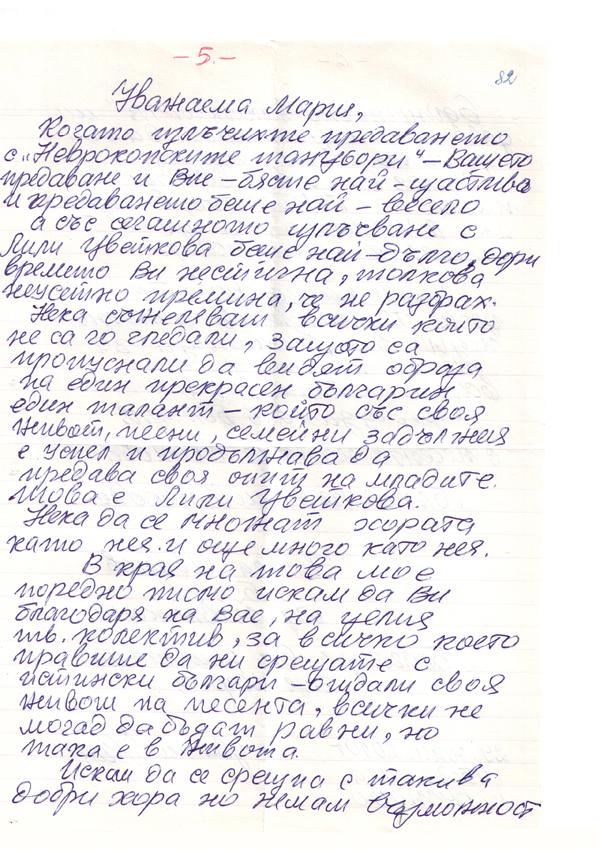 -5.-
82
Уважаема Мария,
Когато излъчихте предаването
с "Неврокопските танубори" - Вашето
предаване и Вие - бяхте най - щастлива
и предаването беше най - весело
а със сегашното излъчване с
Лили Цветкова беше най-дълго, дори
времето Ви нестигна, толкова
неусетно премина, че не разбрах.
Нека съжеляват всички които
не са го гледали, защото са
пропуснали да видят образа
на един прекрасен българин
един талант - който със своя
живот, песни, семейни задължия
е успел и продължава да
предава своя опит на младите.
Това е Лили Цветкова.
Нека да се множат хората
като нея. и още много като нея.
В края на това мое
поредно писмо искам да Ви
благодаря на Вас, на целия
тв. колектив, за всичко което
правише да ни срещате с
истински българи - отдали своя
живот на песента, всички не
могад да бъдат равни, но
така е в живота.
Искам да се срещна с такива
добри хора но немам възможност